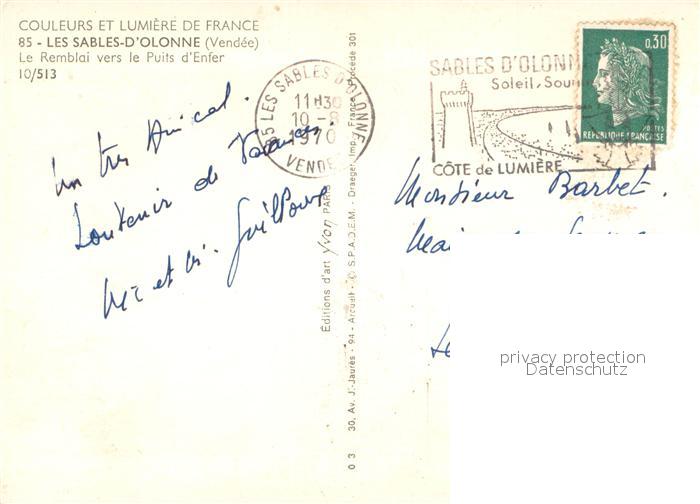 COULEURS ET LUMIÈRE DE FRANCE
85 - LES SABLES-D'OLONNE (Vendée)
Le Remblai vers le Puits d'Enfer
10/513
Un très Amical
Souvenir de Vacances.
Mr et
85 LES SABLES D'OLONNE
11H30
10-8
1970
VENDEE
SABLES D'OLONN
Soleil, Sou
CÔTE de LUMIÈRE
0.30
POSTES
REPUBLIQUE FRANÇAISE
Éditions d'art yvon PARIS
30, Av. J.-Jaurès - 94 - Arcueil - © S.P.A.D.E.M. - Draeger Imp. France Procédé 301
0 3
Monsieur Barbet.
privacy protection
Datenschutz